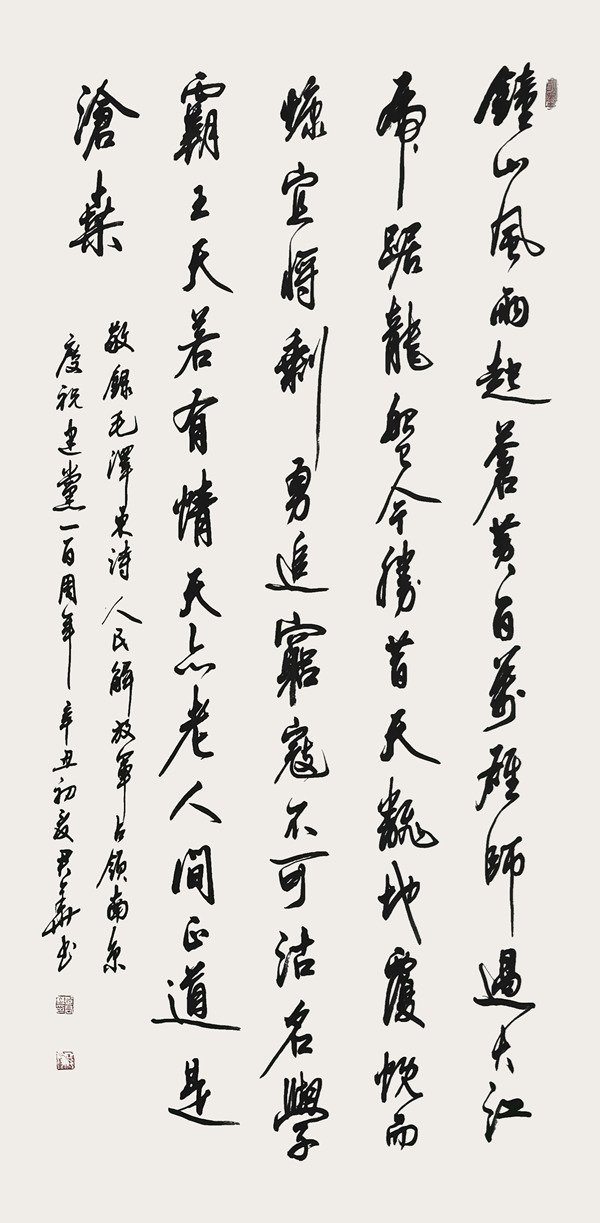 鐘山風雨起蒼黃百萬雄師過大江
虎踞龍盤今勝昔天翻地覆慨而
慷宜將剩勇追窮寇不可沽名學
霸王天若有情天亦老人間正道是
滄桑
敬錄毛澤東詩人民解放軍占領南京
慶祝建黨一百周年辛丑初夏君華书